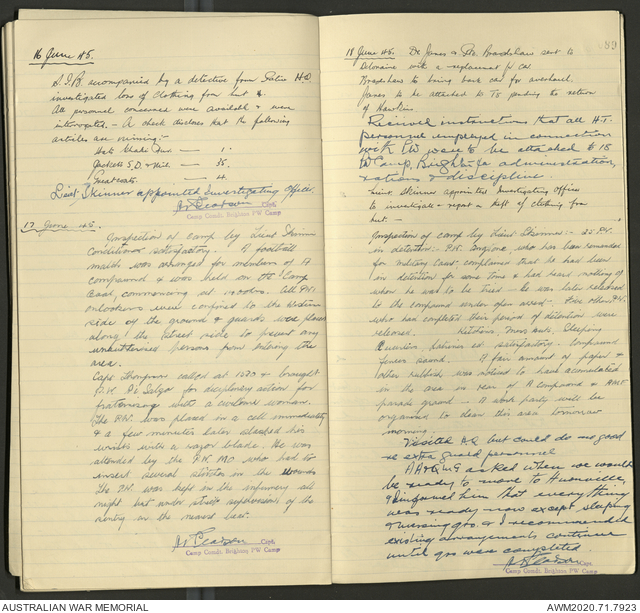 16 June 45.
S.I.B. accompanied by a detective from Police HQ
investigated loss of clothing from hut
All personnel concerned were available & were
interrogated. – A check discloses that the following
articles are missing:-
Hats Khaki — 1.
Jackets S.D. — 35.
Greatcoats. — 4.
Lieut. Skinner appointed Investigating Officer.
Capt.
Camp Comdr. Brighton PW Camp
17 June 45.
Inspection of camp by Lieut Skinner
Conditions satisfactory. A football
match was arranged for members of A
compound & was held on the Camp
Oval, commencing at hrs. All PW.
onlookers were confined to the
side of the ground & guards were placed
along the street side to prevent any
unauthorised persons from entering the
area.
Capt Thompson called at & brought
P.W. Di for disciplinary action for
fraternising with a woman.
The P.W. was placed in a cell immediately
& a few minutes later slashed his
wrists with a razor blade. He was
attended by the P.W. M.O. who had to
insert several stitches in the wounds
The P.W. was kept in the infirmary all
night but under strict supervision of the
in the nearest bed.
Capt.
Camp Comdr. Brighton PW Camp
89
18 June 45. Dr. Jones & Pte. Bradshaw sent to
Deloraine with a replacement car
Bradshaw to bring back car for overhaul.
Jones to be attached to pending the return
of Hawkins
Received instructions that all H.T.
personnel employed in connection
with PW were to be attached to 18
PW Camp, Brighton for administration,
rations & discipline.
Lieut Skinner appointed Investigating Officer
to investigate & report on theft of clothing from
hut
Inspection of camp by Lieut Skinner:- 22 PW.
in detention. P.W. who has been remanded
for Military Court complained that he had been
in detention for some time & had heard nothing of
when he was to be tried – he was later released
to the compound under open arrest – Five other PW.
who had completed their period of detention were
released. Kitchens, Mess huts, Sleeping
Quarters satisfactory. Compound
fences sound. A fair amount of paper &
other rubbish was noticed to have accumulated
in the area in rear of A Compound &
parade ground – A work party will be
organised to clean this area tomorrow
morning.
Visited HQ but could do no good
re extra guard personnel
asked when we would
be ready to move to Huonville,
& I informed him that everything
was ready now except sleeping
& messing qrs. & I recommended
existing arrangements continue
until qrs were completed
Capt.
Camp Comdr. Brighton PW Camp
AUSTRALIAN WAR MEMORIAL
AWM2020.71.7923